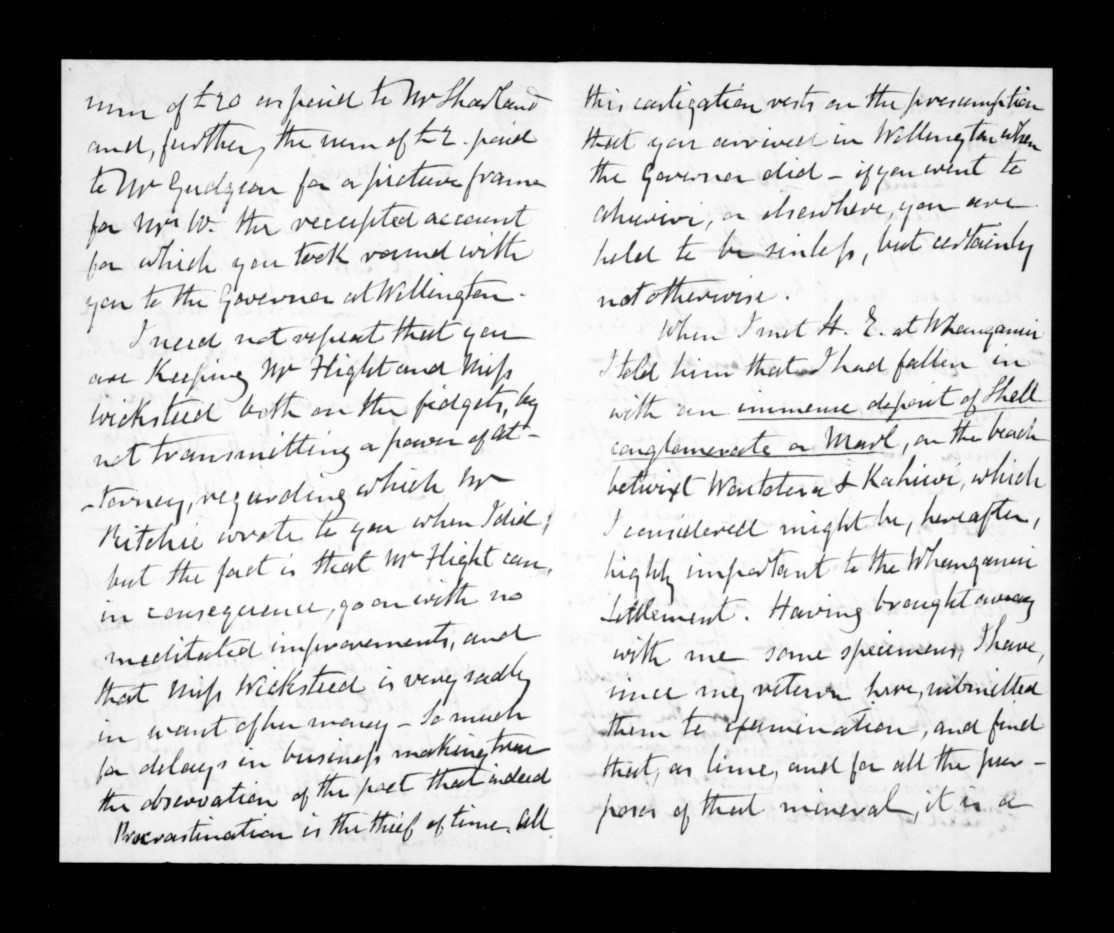 sum of £20 as paid to Mr Sharland
and, further, the sum of £2. paid
to Mr Gudgeon for a picture frame
for Mrs W. the receipted account
for which you took round with
you to the Governor at Wellington.
I need not repeat that you
are keeping Mr Flight and Miss
Wicksteed both on the fidgets, by
not transmitting a power of at-
-torney, regarding which Mr
Ritchie wrote to you when I did;
but the fact is that Mr Flight can,
in consequence, go on with no
meditated improvements, and
that Miss Wicksteed is very sadly
in want of her money - So much
for delays in business making true
the observation of the poet that indeed
Procrastination is the thief of time. All
this castigation rests on the presumption
that you arrived in Wellington when
the Governor did - if you went to
Ahuriri, or elsewhere, you are
held to be sinless, but certainly
not otherwise.
When I met H. E. at Whanganui
I told him that I had fallen in
with an immense deposit of Shell
conglomerate or Marl, on the beach
betwixt Waitotara & Kaiiwi, which
I considered might be, hereafter,
highly important to the Whanganui
Settlement. Having brought away
with me some specimens, I have,
since my return here, submitted
them to examination, and find
that, as lime, and for all the pur-
poses of that mineral, it is a